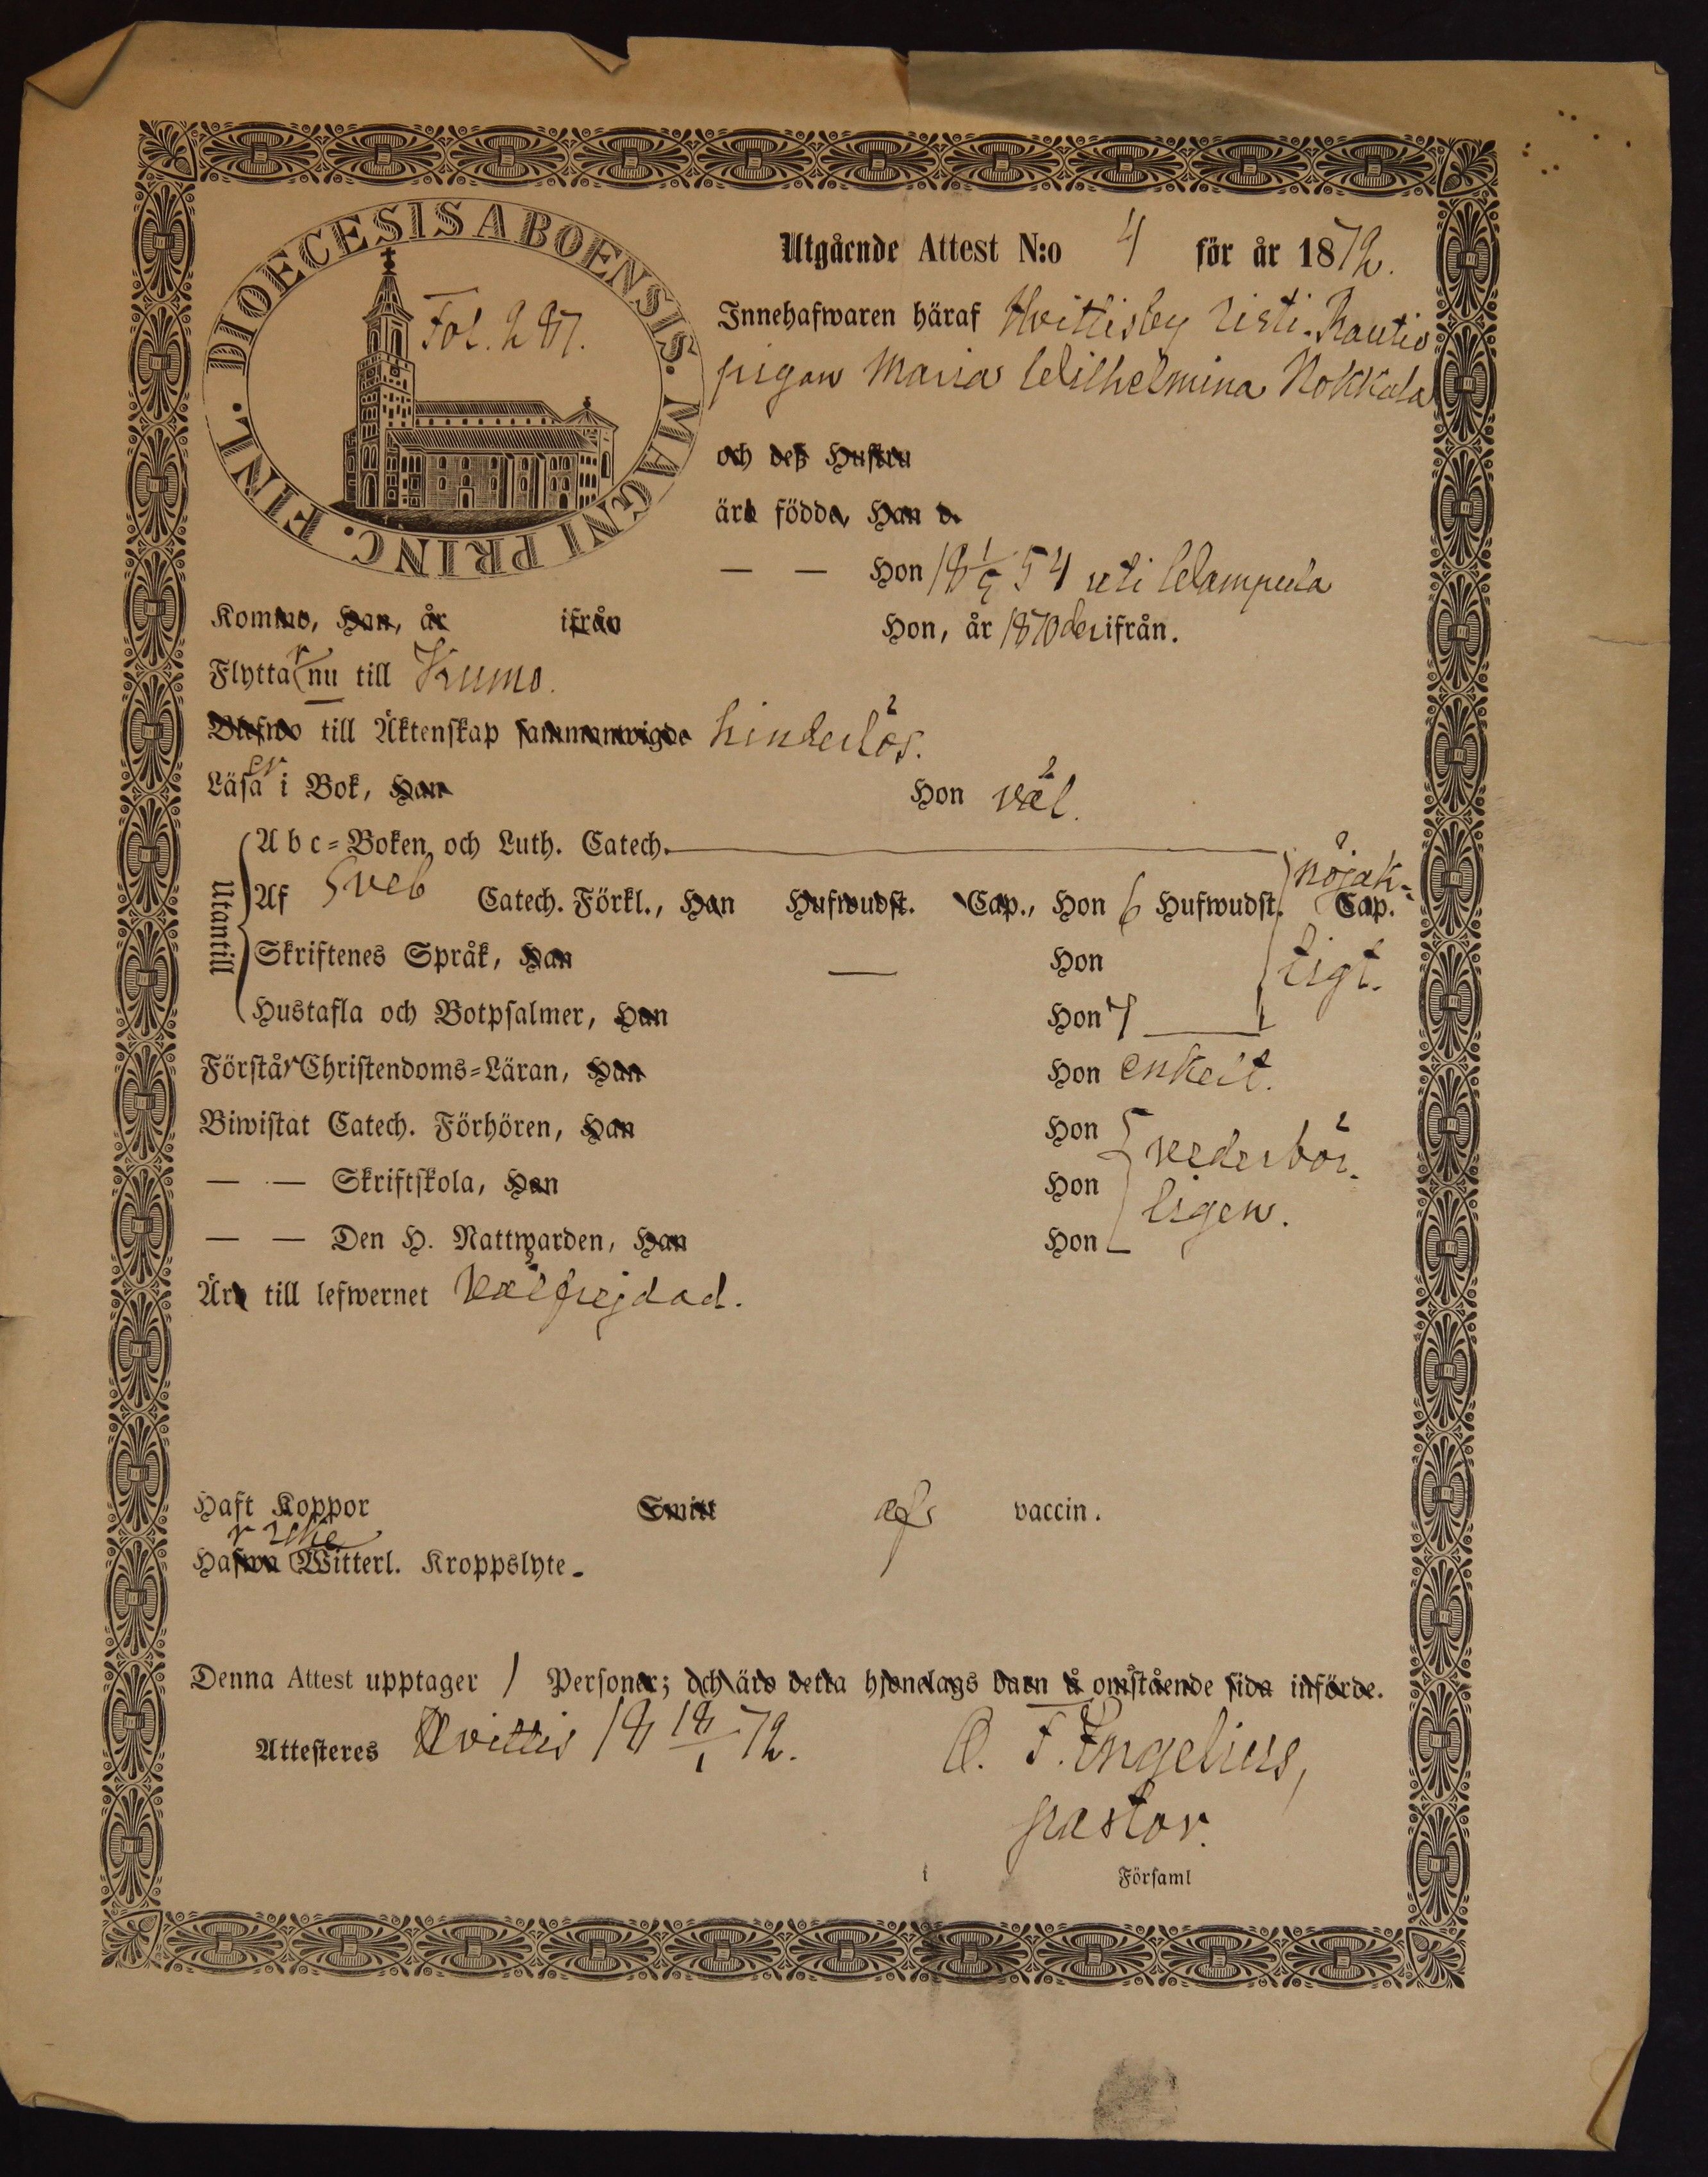 DIOECESIS ABOENSIS. MAGNI PRINC. FINL.
Fol. 287.
Utgående Attest N:o 4 för år 1872.
Innehafwaren häraf Hvittisby Risti-Rautio
pigan Maria Wilhelmina Nokkala
och deß Hustru
äro födde, Han d.
— — Hon 18 1/5 54 uti Wampula
Kommo, Han, år ifrån Hon, år 1870 derifrån.
Flyttar nu till Kumo.
Blefwo till Äktenskap sammanwigde hinderlös.
Läser i Bok, Han Hon väl.
Utantill
Abc-Boken och Luth. Catech.
Af Sveb Catech. Förkl., Han Hufwudst. Cap., Hon 6 Hufwudst. Cap. nöjak-
Skriftenes Språk, Han — Hon tigt.
Hustafla och Botpsalmer, Han Hon 7
Förstår Christendoms-Läran, Han Hon enkelt.
Biwistat Catech. Förhören, Han Hon vederbör-
— — Skriftskola, Han Hon ligen.
— — Den H. Nattwarden, Han Hon
Äro till lefwernet välfrejdad.
Haft Koppor Smitt vaccin.
r icke
Hafwa Witterl. Kroppslyte.
Denna Attest upptager 1 Personer; och äro detta hjonelags barn å omstående sida införde.
Attesteres Hvittis 18 18/1 72. F. Engelius,
pastor.
i Församl